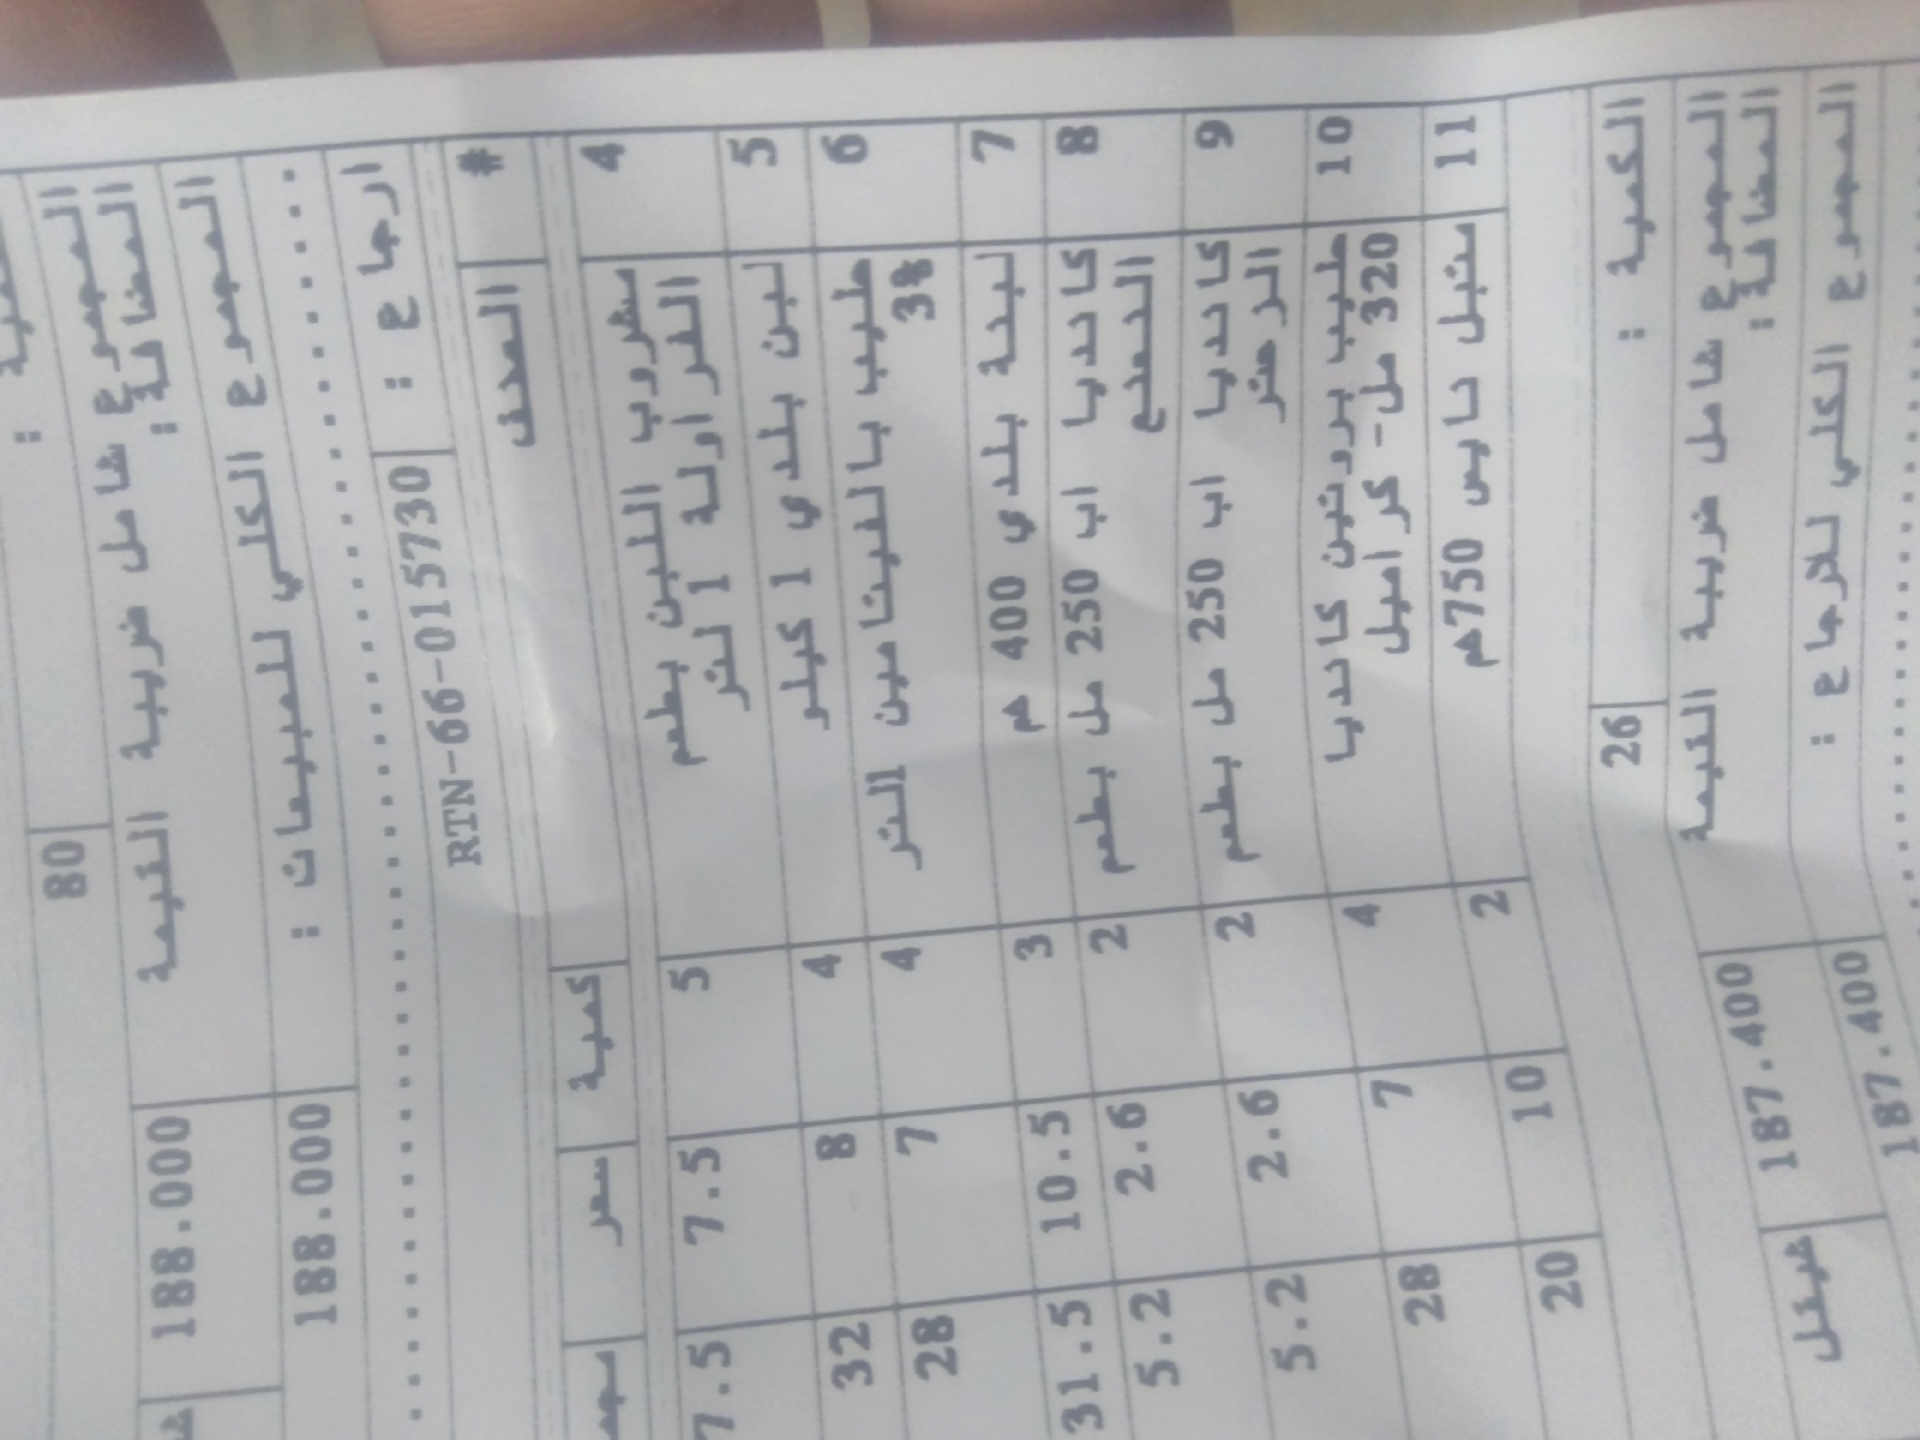 الكمية :
80
المجموع شامل ضريبة القيمة
المضافة :
188.000
المجموع الكلي للمبيعات :
188.000
ارجاع :
RTN-66-015730
# الصنف كمية سعر
4 مشروب اللبن بطعم 5 7.5
الفراولة 1 لتر
5 لبن بلدي 1 كيلو 4 8 32
6 حليب بالفيتامين لتر 4 7 28
3%
7 لبنة بلدي 400 غم 3 10.5 31.5
8 كانديا اب 250 مل بطعم 2 2.6 5.2
9 كانديا اب 250 مل بطعم 2 2.6 5.2
10 حليب بروتين كانديا 4 7 28
320 مل- كراميل
11 متبل نابس 750غم 2 10 20
الكمية :
26
المجموع شامل ضريبة القيمة
المضافة :
187.400
شيقل
المجموع الكلي للارجاع :
187.400